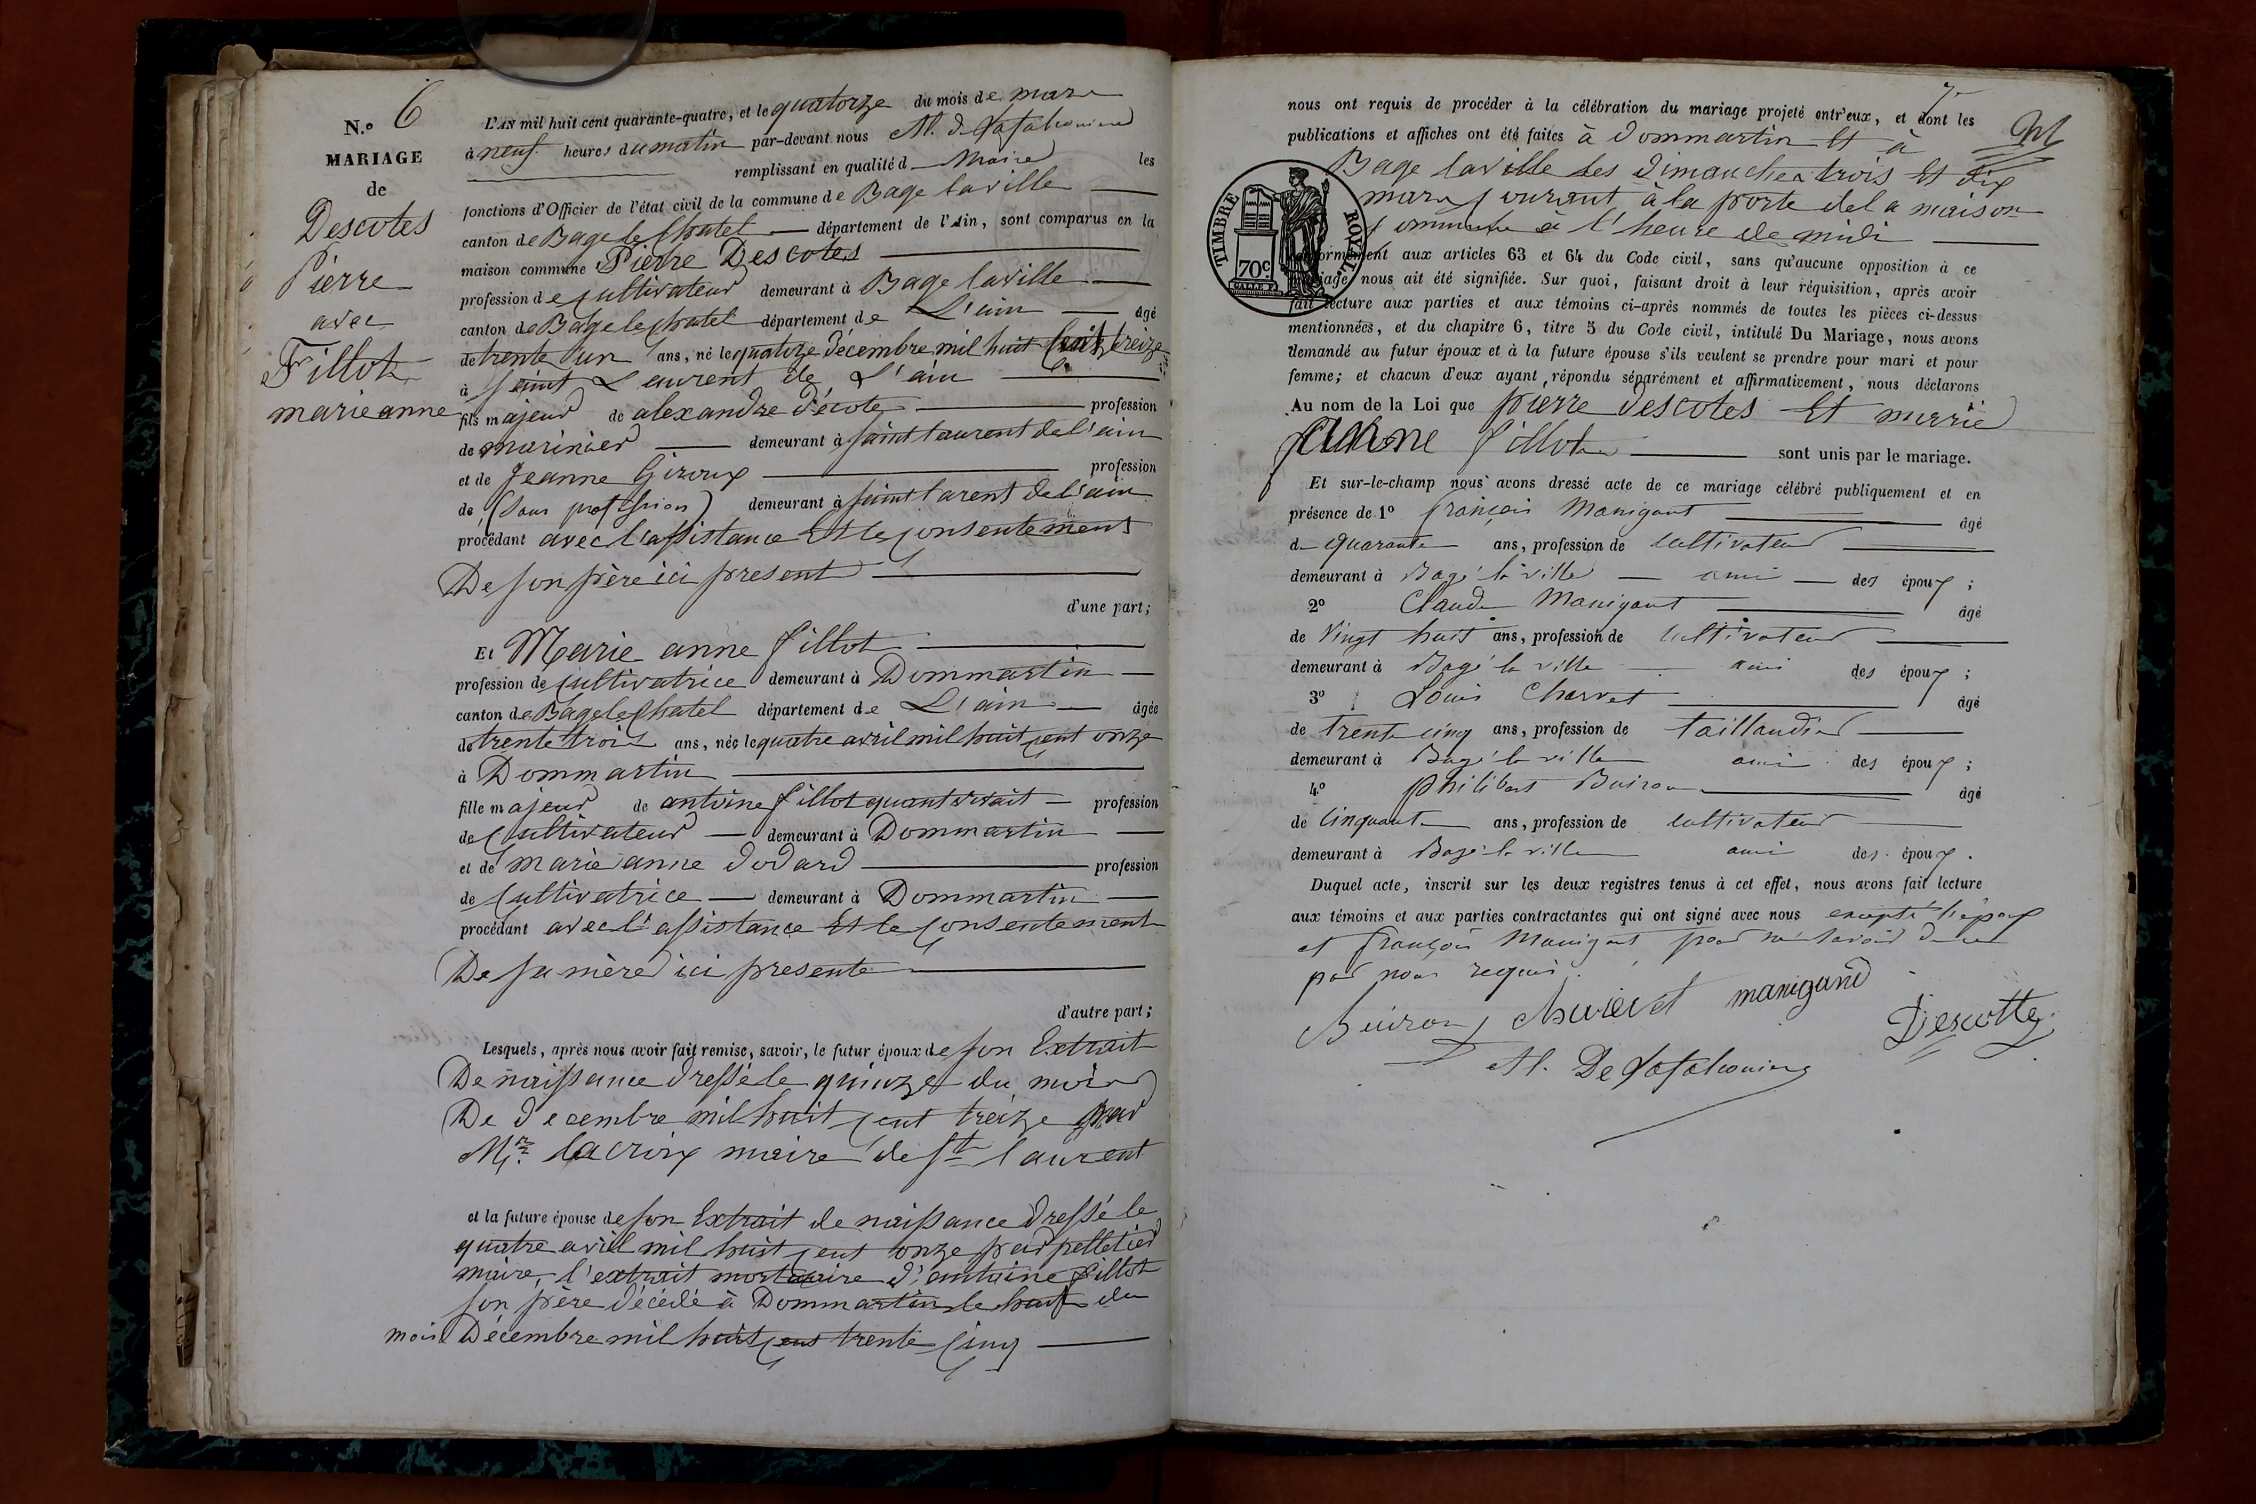 N.º 6
MARIAGE
de
Descotes
Pierre
avec
Fillot
marie anne
L'AN mil huit cent quarante-quatre, et le quatorze du mois de mars
à neuf heures du matin par-devant nous
remplissant en qualité d Maire les
fonctions d'Officier de l'état civil de la commune de Bage laville
canton de Bage le Chatel département de l'Ain, sont comparus en la
maison commune Pierre Descotes
profession de cultivateur demeurant à Bage laville
canton de Bage le Chatel département de L'ain âgé
de trente un ans, né le quatorze décembre mil huit cent treize
à saint Laurent de L'ain
fils majeur de alexandre décote profession
de marinier demeurant à saint laurent de l'ain
et de Jeanne Giroux profession
de (sans profession) demeurant à saint larent de l'ain
procédant avec l'assistance Et le consentement
De son père ici present
d'une part;
Et Marie anne fillot
profession de cultivatrice demeurant à Dommartin
canton de Bage le Chatel département de L'ain âgée
de trente trois ans, née le quatre avril mil huit cent onze
à Dommartin
fille majeur de antoine fillot quant vivait profession
de cultivateur demeurant à Dommartin
et de marie anne dodard profession
de cultivatrice demeurant à Dommartin
procédant avec l'assistance Et le consentement
De sa mère ici presente
d'autre part;
Lesquels, après nous avoir fait remise, savoir, le futur époux de son Extrait
De naissance dressé le quinze du mois
De decembre mil huit cent treize par
Mr. lacroix maire de St laurent
et la future épouse de son Extrait de naissance dressé le
quatre avril mil huit cent onze par pelletier
maire, l'extrait mortuaire d'antoine fillot
son père décédé à Dommartin le huit du
mois Décembre mil huit cent trente cinq
7
nous ont requis de procéder à la célébration du mariage projeté entr'eux, et dont les
publications et affiches ont été faites à dommartin Et à
Bage laville les dimanches trois Et dix
mars courant, à la porte de la maison
commune à l'heure de midi
conformément aux articles 63 et 64 du Code civil, sans qu'aucune opposition à ce
mariage nous ait été signifiée. Sur quoi, faisant droit à leur réquisition, après avoir
fait lecture aux parties et aux témoins ci-après nommés de toutes les pièces ci-dessus
mentionnées, et du chapitre 6, titre 5 du Code civil, intitulé Du Mariage, nous avons
demandé au futur époux et à la future épouse s'ils veulent se prendre pour mari et pour
femme; et chacun d'eux ayant répondu séparément et affirmativement, nous déclarons
Au nom de la Loi que pierre descotes Et marrie
anne fillot sont unis par le mariage.
TIMBRE ROYAL
70c
Et sur-le-champ nous avons dressé acte de ce mariage célébré publiquement et en
présence de 1º françois Manigant âgé
de quarante ans, profession de cultivateur
demeurant à Bagé la ville ami des époux;
2º Claude Manigant âgé
de vingt huit ans, profession de cultivateur
demeurant à Bagé la ville ami des époux;
3º Louis Charvet âgé
de trente cinq ans, profession de taillandier
demeurant à Bagé la ville ami des époux;
4º philibert Buiron âgé
de cinquante ans, profession de cultivateur
demeurant à Bagé la ville ami des époux.
Duquel acte, inscrit sur les deux registres tenus à cet effet, nous avons fait lecture
aux témoins et aux parties contractantes qui ont signé avec nous excepté l'épouse
et françois Manigant pour ne savoir de ce
par nous requis.
Buiron manigand
Descotte